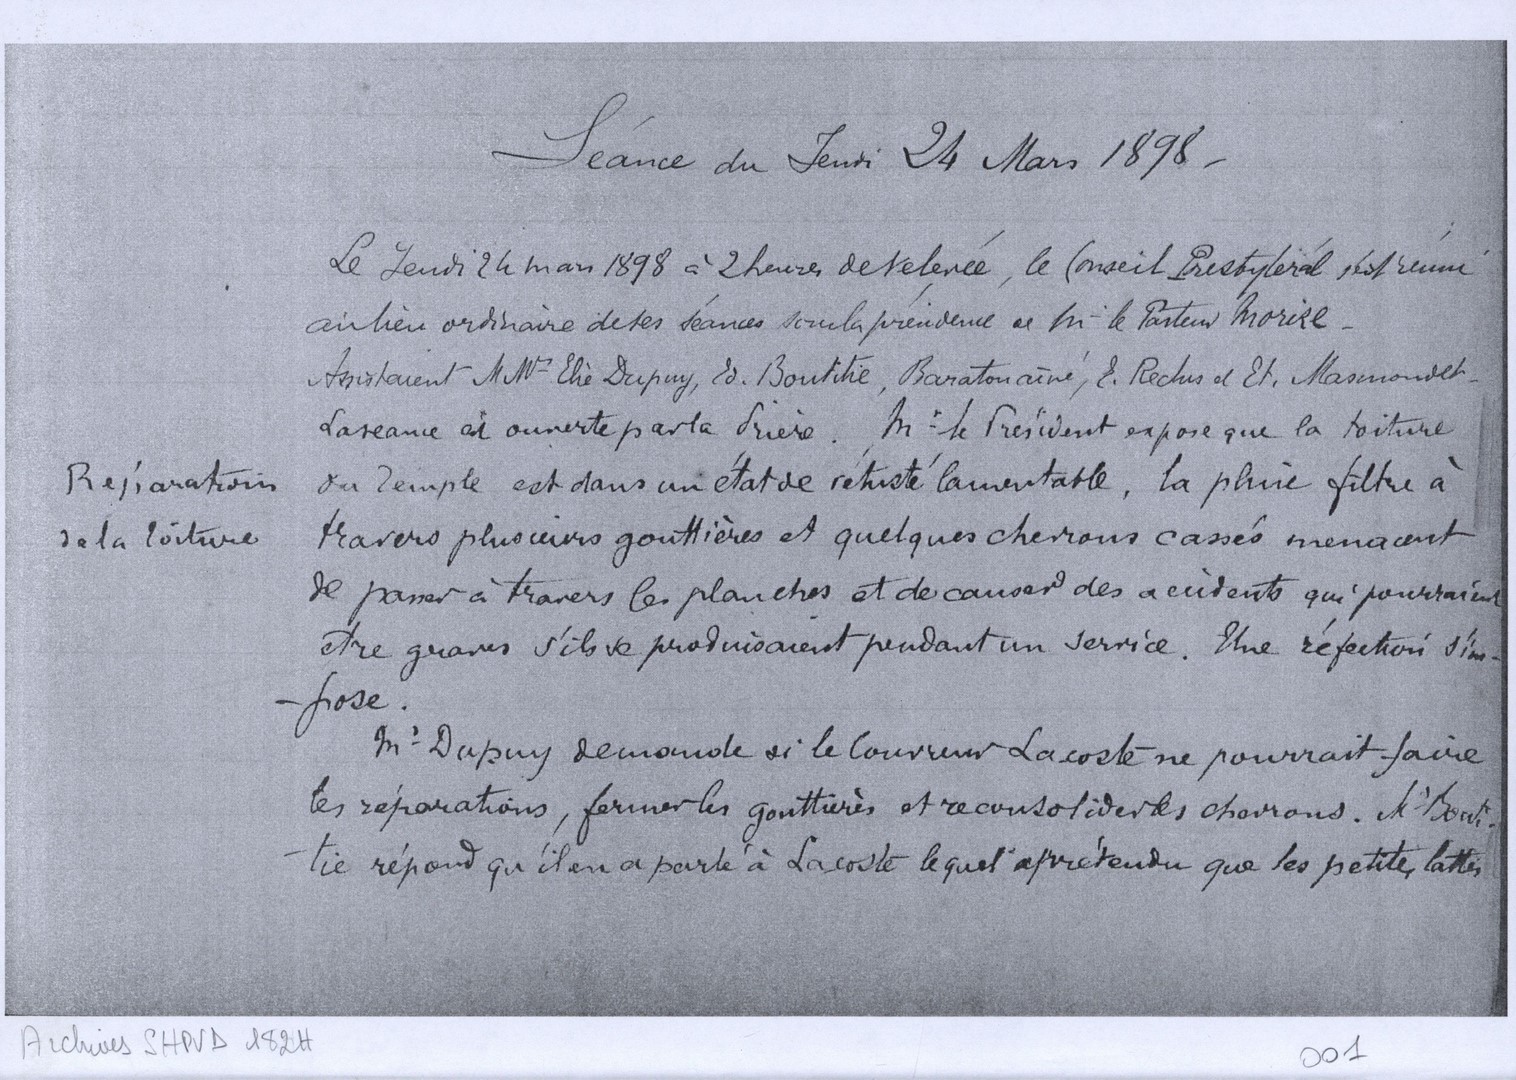 Séance du Jeudi 24 Mars 1898 -
Le Jeudi 24 mars 1898 à 2 heures de relevée, le Conseil Presbytéral s'est réuni
au lieu ordinaire de ses séances sous la présidence de Mr le Pasteur Morize -
Assistaient M Mrs Elie Dupuy, Ed. Boutitie, Baraton aîné, E. Reclus et Et. Masmondet -
La séance est ouverte par la Prière. Mr le Président expose que la toiture
Réparation
de la toiture
du Temple est dans un état de vétusté lamentable, la pluie filtre à
travers plusieurs gouttières et quelques chevrons cassés menacent
de passer à travers les planches et de causer des accidents qui pourraient
etre graves s'ils se produisaient pendant un service. Une réfection s'im-
-pose.
Mr Dupuy demande si le Couvreur Lacoste ne pourrait faire
les réparations, fermer les gouttières et reconsolider les chevrons. Mr Bouti-
-tie répond qu'il en a parlé à Lacoste lequel a prétendu que les petites lattes
Archives SHPVD 182H
001